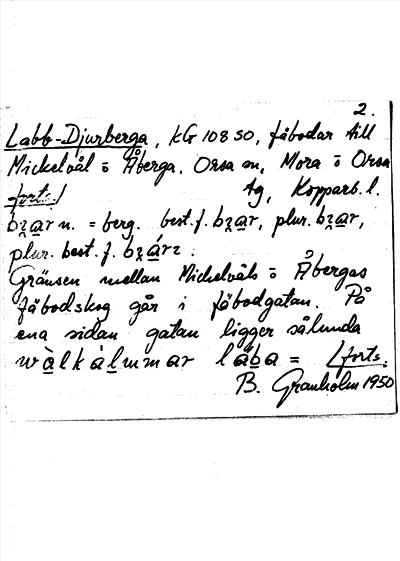 2.
Labb-Djurberga, KG 10850, fäbodar till
Mickelvål o Åberga. Orsa sn, Mora o Orsa
forts./ tg, Kopparb. l.
bʒa̲r n. = berg. best. f. bʒa̲r, plur. bʒa̲r,
plur. best. f. bʒa̲rɪ.
Gränsen mellan Mickelvåls o Åbergas
fäbodskog går i fäbodgatan. På
ena sidan gatan ligger sålunda
wà̲lkàl̲mmar lába =  /forts.
B. Granholm 1950